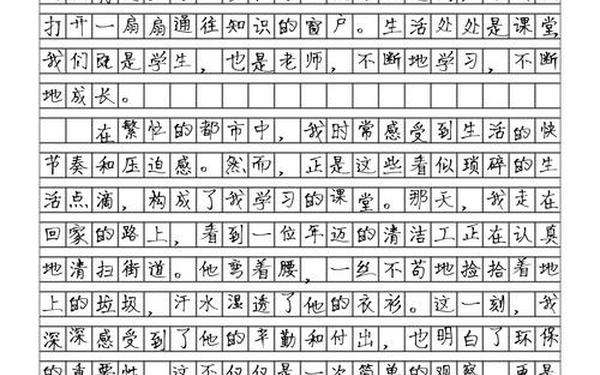 打开一扇扇通往知识的窗户。生活处处是课堂，
我们既是学生，也是老师，不断地学习，不断
地成长。
在繁忙的都市中，我时常感受到生活的快
节奏和压迫感。然而，正是这些看似琐碎的生
活点滴，构成了我学习的课堂。那天，我走在
回家的路上，看到一位年迈的清洁工正在认真
地清扫街道。他弯着腰，一丝不苟地捡拾着地
上的垃圾，汗水湿透了他的衣衫。这一刻，我
深深感受到了他的辛勤和付出，也明白了环保
的重要性。这不仅仅是一次简单的观察，更是